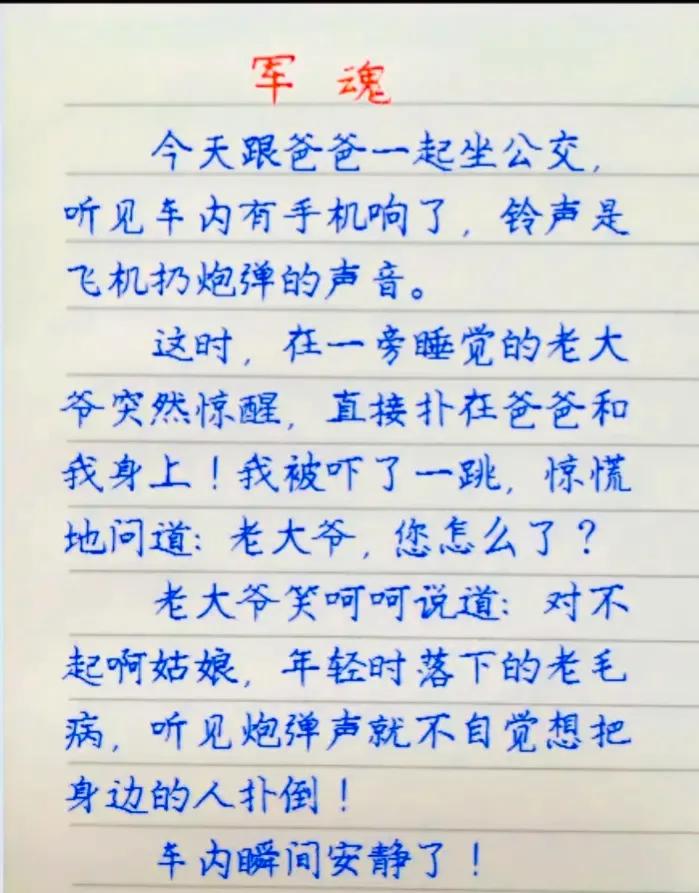 军魂
今天跟爸爸一起坐公交,
听见车内有手机响了,铃声是
飞机扔炮弹的声音。
这时,在一旁睡觉的老大
爷突然惊醒,直接扑在爸爸和
我身上!我被吓了一跳,惊慌
地问道:老大爷,您怎么了?
老大爷笑呵呵说道:对不
起啊姑娘,年轻时落下的老毛
病,听见炮弹声就不自觉想把
身边的人扑倒!
车内瞬间安静了!